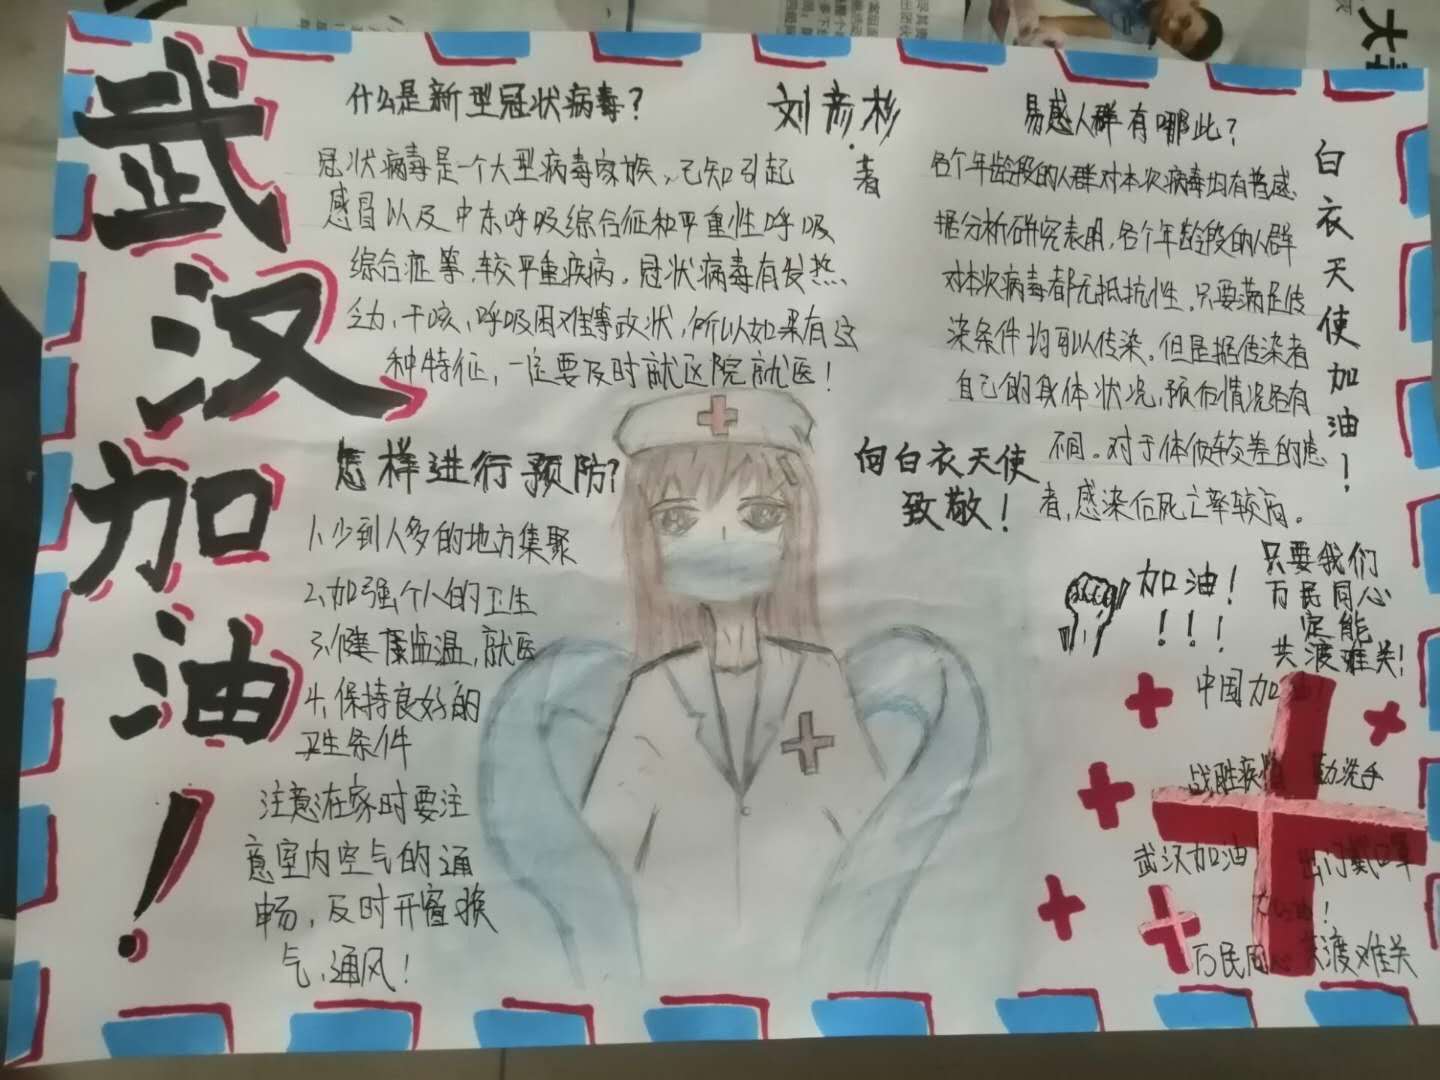 武
汉
加
油
！
什么是新型冠状病毒？
冠状病毒是一个大型病毒家族，已知引起
感冒以及中东呼吸综合征和严重性呼吸
综合症等，较严重疾病。冠状病毒有发热
乏力，干咳，呼吸困难等症状，所以如果有这
种特征，一定要及时就医院就医！
刘彦杉
著
易感人群有哪些？
各个年龄段的人群对本次病毒均有普感，
据分析研究表明，各个年龄段的人群
对本次病毒都无抵抗性，只要满足传
染条件均可以传染。但是据传染者
自己的身体状况，预后情况各有
不同。对于体质较差的患
者，感染后死亡率较高。
白衣天使加油！
怎样进行预防？
1.少到人多的地方集聚
2.加强个人的卫生
3.健康监温，就医
4.保持良好的
卫生条件
注意在家时要注
意室内空气的通
畅，及时开窗换
气，通风！
向白衣天使
致敬！
加油！
！！！
只要我们
万民同心
定能
共渡难关！
中国加
战胜疫
勤洗手
武汉加油
出门戴口罩
万民同心 共渡难关